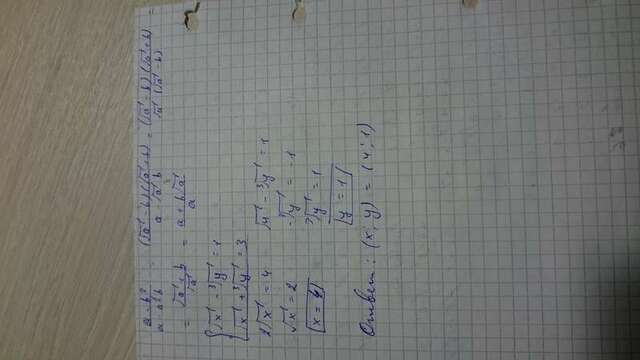 a - b² / a - a' b = (√a - b)(√a + b) / a - √a b = (√a - b)(√a + b) / √a (√a - b) =
= √a + b / √a = a + b√a / a
{ √x - ³√y = 1
√x + ³√y = 3
2√x = 4 √4 - ³√y = 1
√x = 2 -³√y = -1
x = 4 ³√y = 1
y = 1
Ответ: (x; y) = (4; 1)